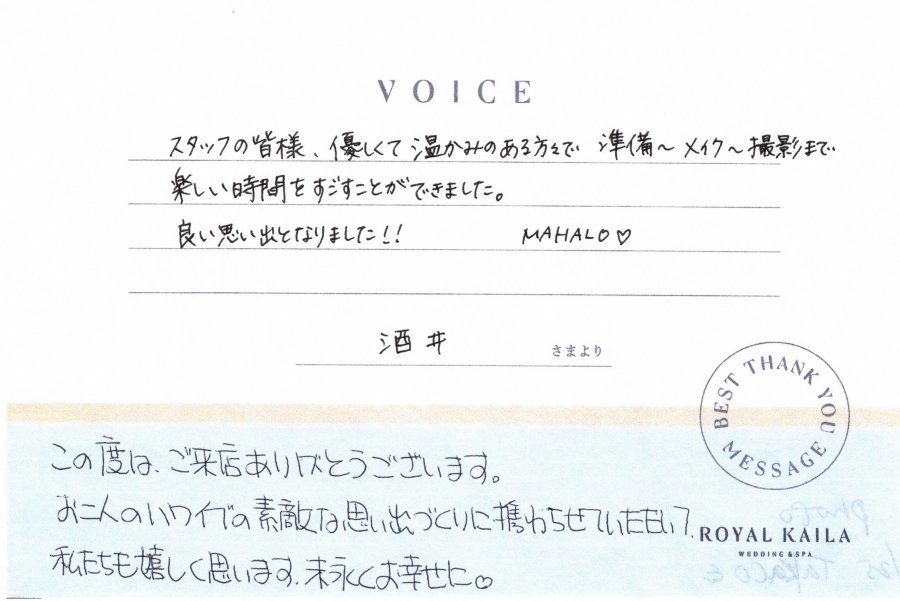 VOICE
スタッフの皆様、優しくて温かみのある方々で 準備〜メイク〜撮影まで
楽しい時間をすごすことができました。
良い思い出となりました!! MAHALO♡
酒井 さまより
BEST THANK YOU MESSAGE
この度は、ご来店ありがとうございます。
お二人のハワイでの素敵な思い出づくりに携わらせていただいて、
私たちも嬉しく思います。末永くお幸せに♡
ROYAL KAILA
WEDDING & SPA
photo
TAKACO